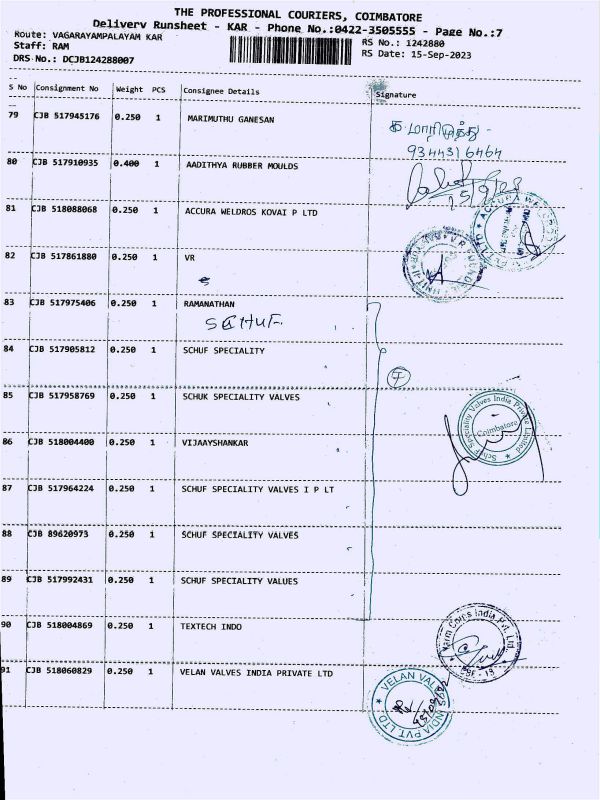 THE PROFESSIONAL COURIERS, COIMBATORE
Delivery Runsheet - KAR - Phone No.:0422-3505555 - Page No.:7
Route: VAGARAYAMPALAYAM KAR
RS No.: 1242880
Staff: RAM
RS Date: 15-Sep-2023
DRS No.: DCJB124288007
S No Consignment No Weight PCS Consignee Details Signature
79 CJB 517945176 0.250 1 MARIMUTHU GANESAN
க.மாரிமுத்து -
9344316464
80 CJB 517910935 0.400 1 AADITHYA RUBBER MOULDS
15/9/23
81 CJB 518088068 0.250 1 ACCURA WELDROS KOVAI P LTD
82 CJB 517861880 0.250 1 VR
83 CJB 517975406 0.250 1 RAMANATHAN
SCHUF
84 CJB 517905812 0.250 1 SCHUF SPECIALITY
7
85 CJB 517958769 0.250 1 SCHUK SPECIALITY VALVES
Schuf Speciality Valves India Private Limited
Coimbatore
86 CJB 518004400 0.250 1 VIJAAYSHANKAR
87 CJB 517964224 0.250 1 SCHUF SPECIALITY VALVES I P LT
88 CJB 89620973 0.250 1 SCHUF SPECIALITY VALVES
89 CJB 517992431 0.250 1 SCHUF SPECIALITY VALUES
90 CJB 518004869 0.250 1 TEXTECH INDO
India Pvt. Ltd.
91 CJB 518060829 0.250 1 VELAN VALVES INDIA PRIVATE LTD
VELAN VALVES INDIA PVT LTD